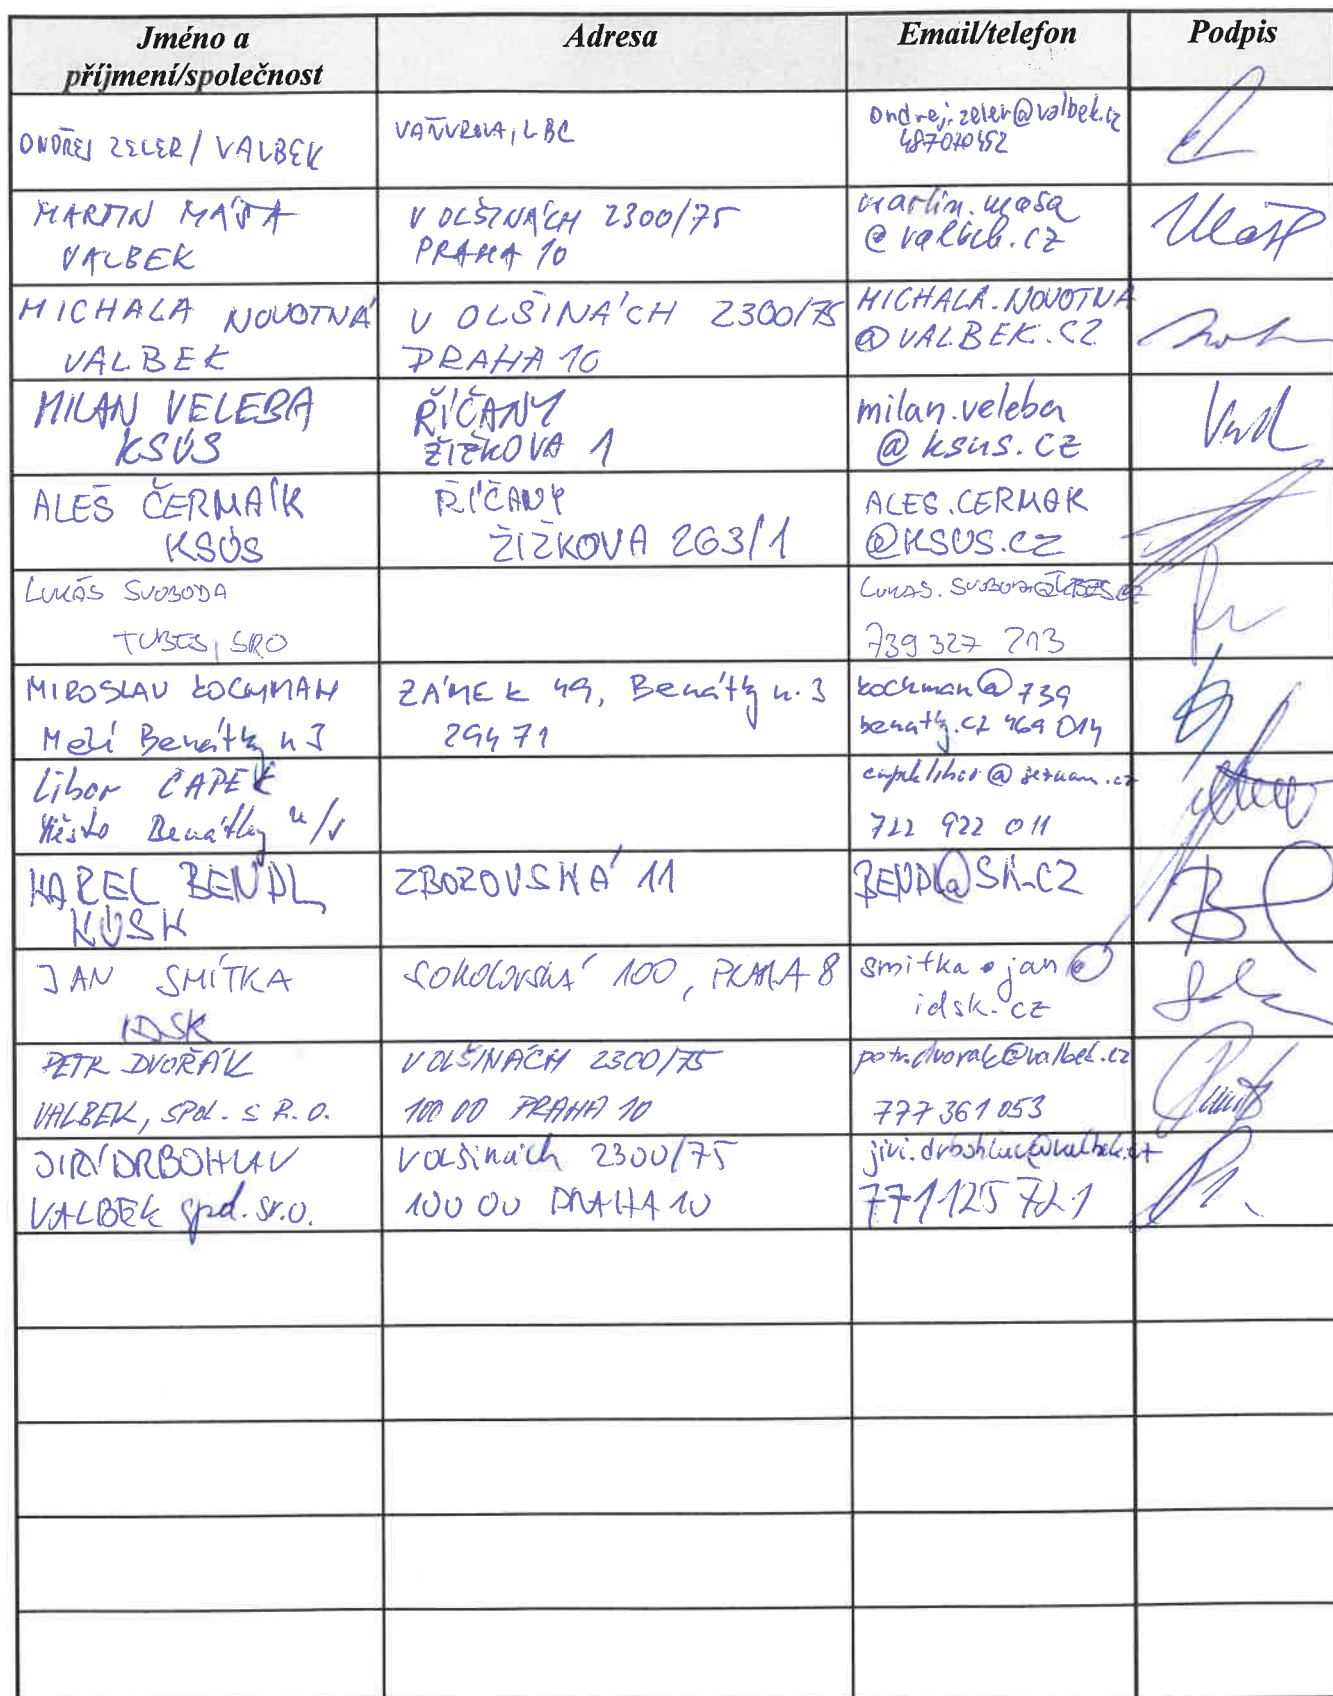 Jméno a
příjmení/společnost
Adresa
Email/telefon
Podpis
ONDŘEJ ZELER / VALBEK
VAŇUROVA, LBC
ondrej.zeler@valbek.cz
487070452
MARTIN MÁŠA
VALBEK
V OLŠINÁCH 2300/75
PRAHA 10
martin.masa
@valbek.cz
MICHALA NOVOTNÁ
VALBEK
V OLŠINÁCH 2300/75
PRAHA 10
MICHALA.NOVOTNA
@VALBEK.CZ
MILAN VELEBA
KSÚS
ŘÍČANY
ŽIŽKOVA 1
milan.veleba
@ksus.cz
ALEŠ ČERMÁK
KSÚS
ŘÍČANY
ŽIŽKOVA 263/1
ALES.CERMAK
@KSUS.CZ
LUKÁŠ SVOBODA
TUBES, SRO
LUKAS.SVOBODA@TUBES.CZ
739 327 213
MIROSLAV KOCHMAN
Benátky n J
ZÁMEK 49, Benátky n. J
294 71
kochman@ 739
benatky.cz 469 014
Libor ČAPEK
Město Benátky n/J
capek.libor@seznam.cz
722 922 011
KAREL BENDL
KÚSK
ZBOROVSKÁ 11
BENDL@SK.CZ
JAN SMÍTKA
IDSK
SOKOLOVSKÁ 100, PRAHA 8
smitka.jan@
idsk.cz
PETR DVOŘÁK
VALBEK, SPOL. S R.O.
V OLŠINÁCH 2300/75
100 00 PRAHA 10
petr.dvorak@valbek.cz
777 361 053
JIŘÍ DRBOHLAV
VALBEK spol. s r.o.
V olšinách 2300/75
100 00 PRAHA 10
jiri.drbohlav@valbek.cz
771 125 721